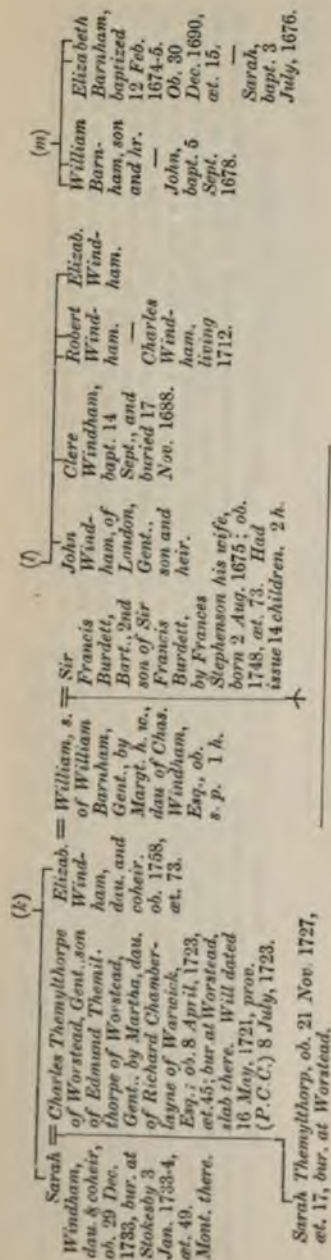 (k)
Sarah
Windham,
dau. & coheir,
ob. 29 Dec.
1733, bur. at
Stokesby 3
Jan. 1733-4,
æt. 49.
Mont. there.
= Charles Themylthorpe
of Worstead, Gent., son
of Edmund Themil-
thorpe of Worstead,
Gent., by Martha, dau.
of Richard Chamber-
layne of Warwick,
Esq.; ob. 8 April, 1723,
æt. 45; bur at Worstead,
slab there. Will dated
16 May, 1721, prov.
(P.C.C.) 8 July, 1723.
Sarah Themylthorp, ob. 21 Nov. 1727,
æt. 17, bur. at Worstead.
Elizab.
Wind-
ham,
dau. and
coheir.
ob. 1758,
æt. 73.
= William, s.
of William
Barnham,
Gent., by
Margt. h. w.,
dau of Chas.
Windham,
Esq., ob.
s. p. 1 h.
= Sir
Francis
Burdett,
Bart., 2nd
son of Sir
Francis
Burdett,
by Frances
Stephenson his wife,
born 2 Aug. 1675; ob.
1748, æt. 73. Had
issue 14 children. 2 h.
(l)
John
Wind-
ham, of
London,
Gent.,
son and
heir.
Clere
Windham,
bapt. 14
Sept., and
buried 17
Nov. 1688.
Robert
Wind-
ham.
—
Charles
Wind-
ham,
living
1712.
Elizab.
Wind-
ham.
(m)
William
Barn-
ham, son
and hr.
—
John,
bapt. 5
Sept.
1678.
Elizabeth
Barnham,
baptized
12 Feb.
1674-5.
Ob. 30
Dec. 1690,
æt. 15.
—
Sarah,
bapt. 3
July, 1676.